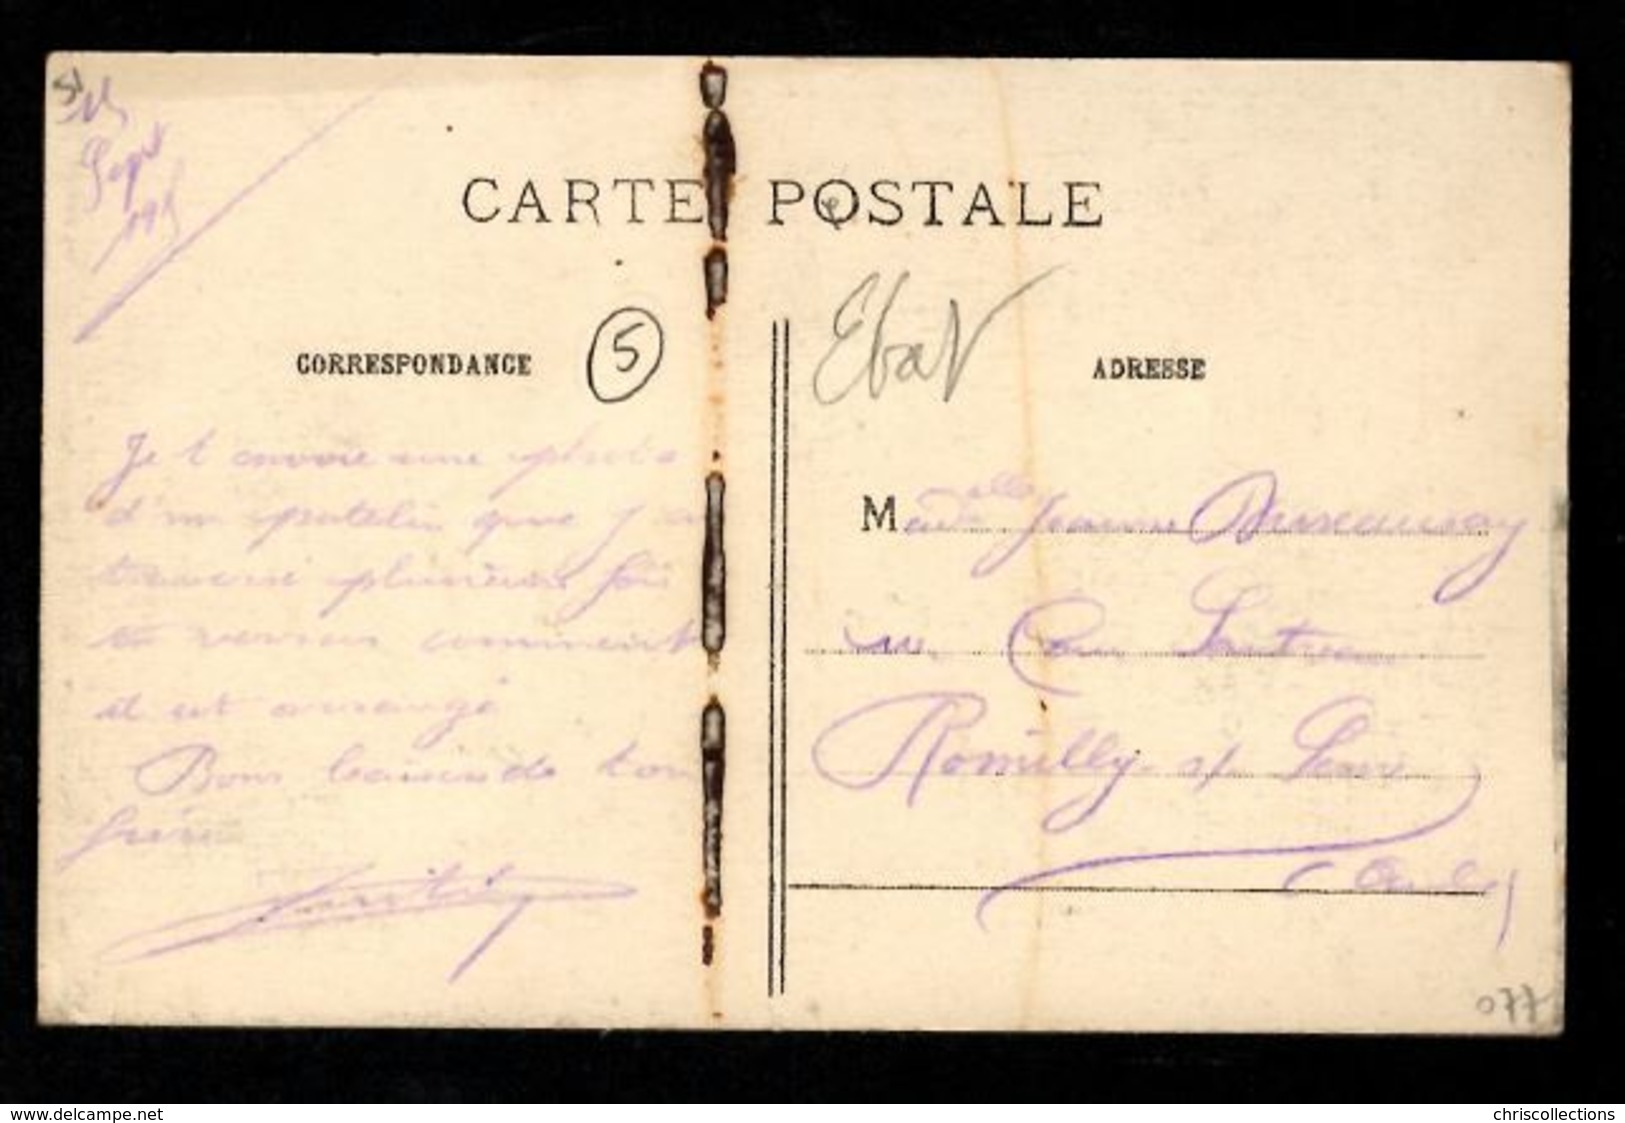 Sept
CARTE POSTALE
CORRESPONDANCE
5
ADRESSE
Je t'envoie une photo
d'un patelin que j'ai
traversé plusieurs fois
tu verras comment
il est arrangé
Bons baisers de ton
frère
Melle Jeanne
Romilly s/ Seine
(Aube)
077
www.delcampe.net
chriscollections